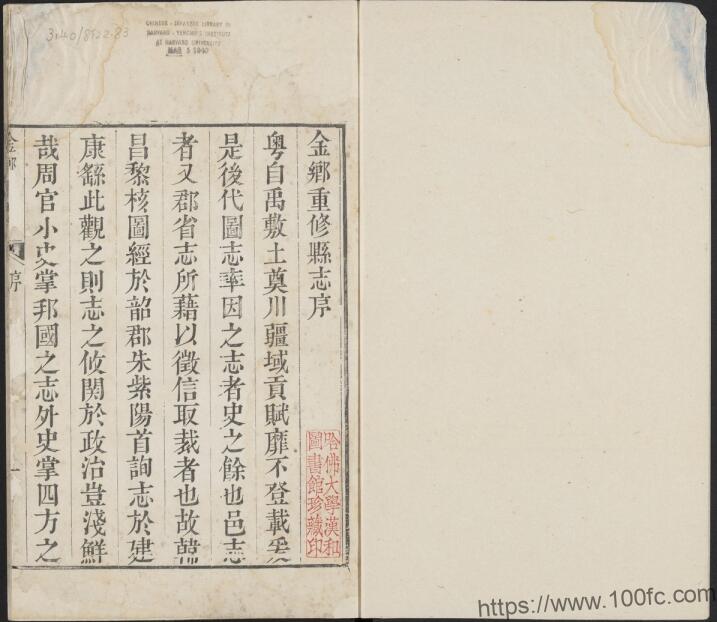 3140/8122.83
CHINESE - JAPANESE LIBRARY OF
HARVARD - YENCHING INSTITUTE
AT HARVARD UNIVERSITY
MAR 5 1940
金鄉重修縣志序
粵自禹敷土奠川疆域貢賦靡不登載爰
是後代圖志率因之志者史之餘也邑志
者又郡省志所藉以徵信取裁者也故韓
昌黎核圖經於韶郡朱紫陽首詢志於建
康繇此觀之則志之攸関於政治豈淺鮮
哉周官小史掌邦國之志外史掌四方之
序
一
哈佛大學漢和
圖書館珍藏印
https://www.100fc.com